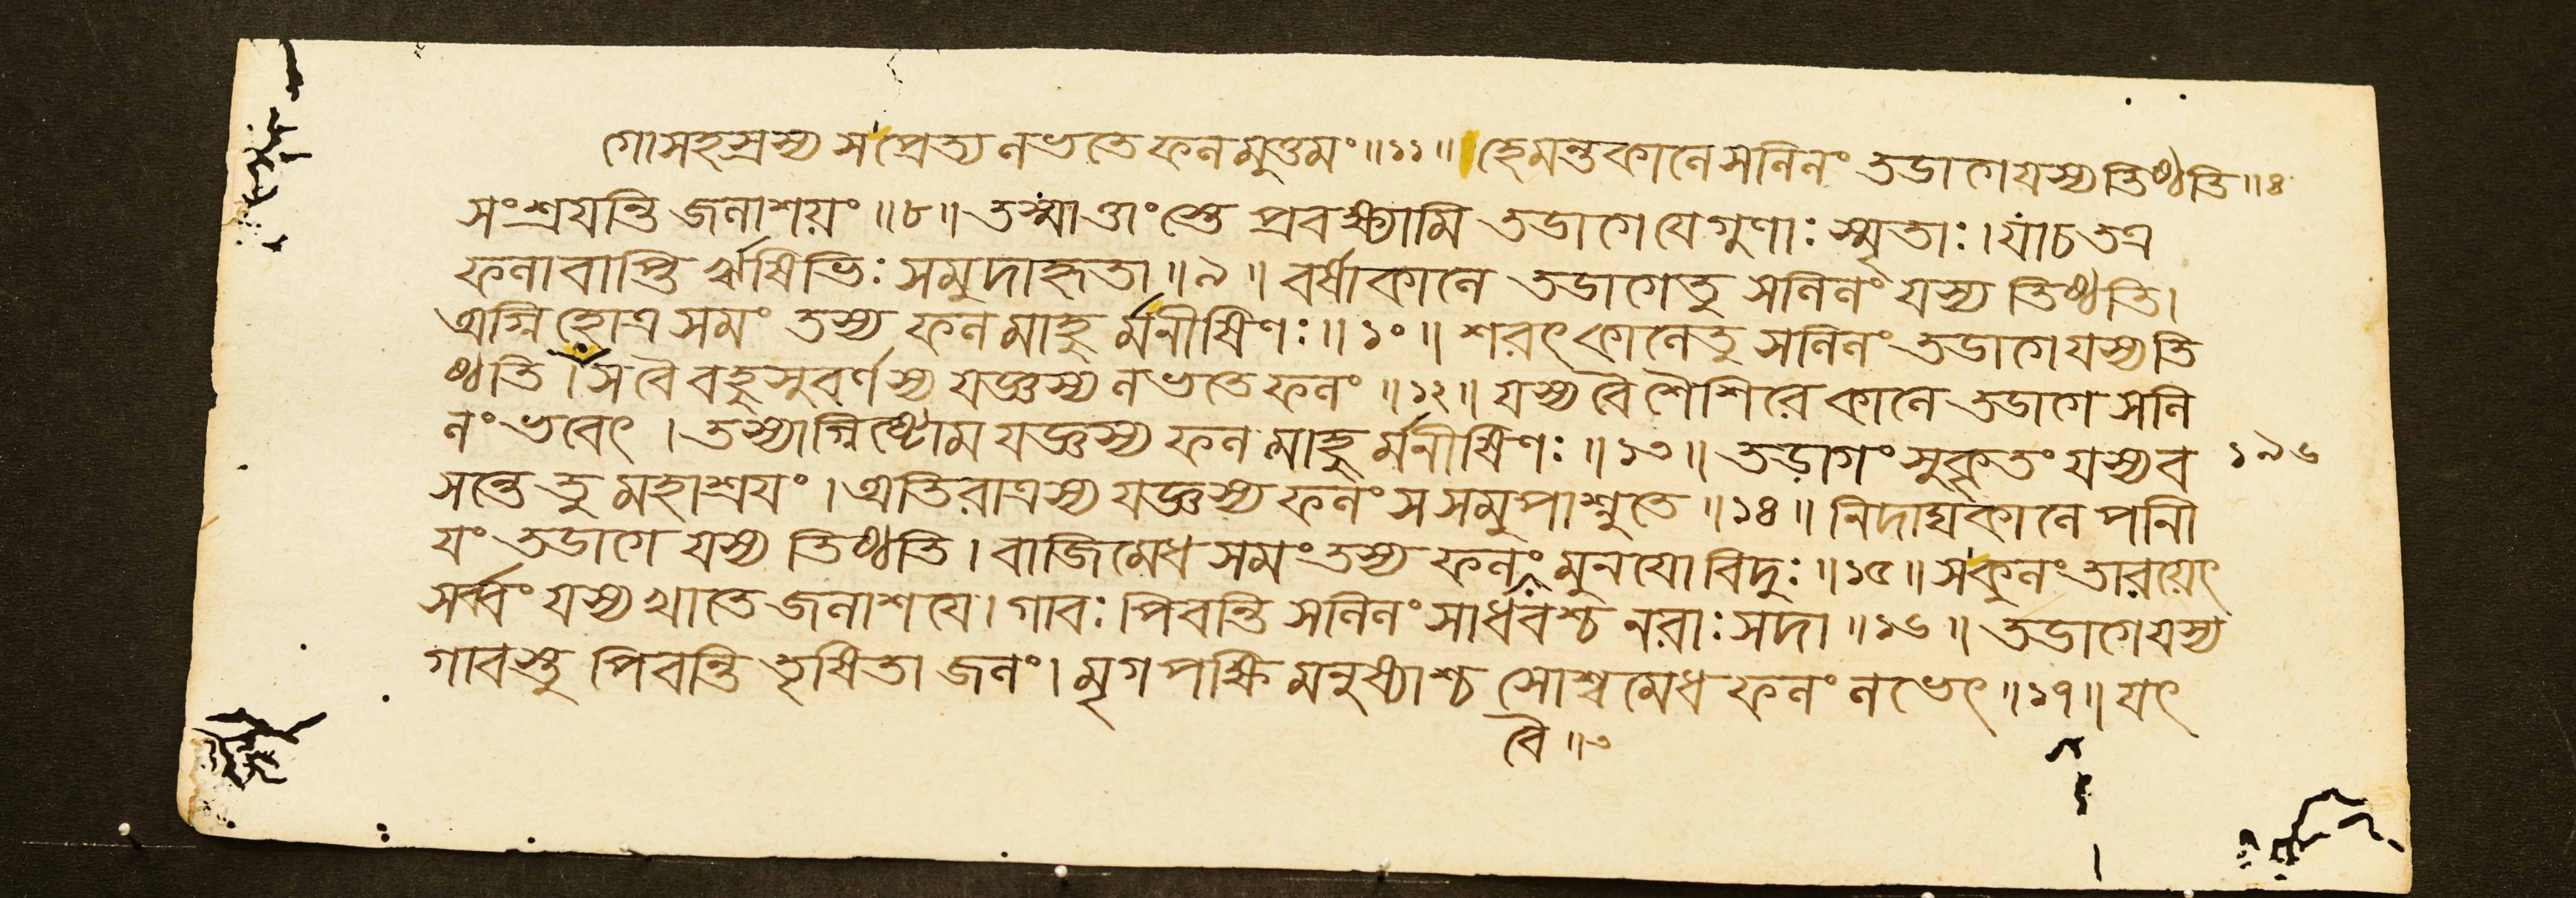 গোসহস্রস্য স প্রেত্য লভতে ফলমুত্তমং॥১১॥ হেমন্তকালে সলিলং তডাগে যস্য তিষ্ঠতি॥৪
সংশ্রযন্তি জলাশয়ং॥৮॥ তস্মাত্তাংস্তে প্রবক্ষ্যামি তডাগে যে গুণাঃ স্মৃতাঃ। যাচ তত্র
ফলাবাপ্তি র্ঋষিভিঃ সমুদাহৃতা॥৯॥ বর্ষাকালে তডাগেতু সলিলং যস্য তিষ্ঠতি।
অগ্নিহোত্রসমং তস্য ফলমাহু র্মনীষিণঃ॥১০॥ শরৎকালেতু সলিলং তডাগে যস্যতি
ষ্ঠতি। স বৈ বহুসুবর্ণস্য যজ্ঞস্য লভতে ফলং॥১২॥ যস্য বৈ শৈশিরে কালে তডাগে সলি
লং ভবেৎ। তস্যাগ্নিষ্টোমযজ্ঞস্য ফলমাহু র্মনীষিণঃ॥১৩॥ তড়াগং সুকৃতং যস্য ব ১৯৬
সন্তে তু মহাশ্রযং। অতিরাত্রস্য যজ্ঞস্য ফলং স সমুপাশ্নুতে॥১৪॥ নিদাঘকালে পানী
যং তডাগে যস্য তিষ্ঠতি। বাজিমেধসমং তস্য ফলং মুনযো বিদুঃ॥১৫॥ স কুলং তারয়েৎ
সর্ব্বং যস্য খাতে জলাশযে। গাবঃ পিবন্তি সলিলং সাধবশ্চ নরাঃ সদা॥১৬॥ তডাগে যস্য
গাবস্তু পিবন্তি তৃষিতা জলং। মৃগপক্ষিমনুষ্যাশ্চ সোশ্বমেধফলং লভেৎ॥১৭॥ যৎ
বৈ॥৩